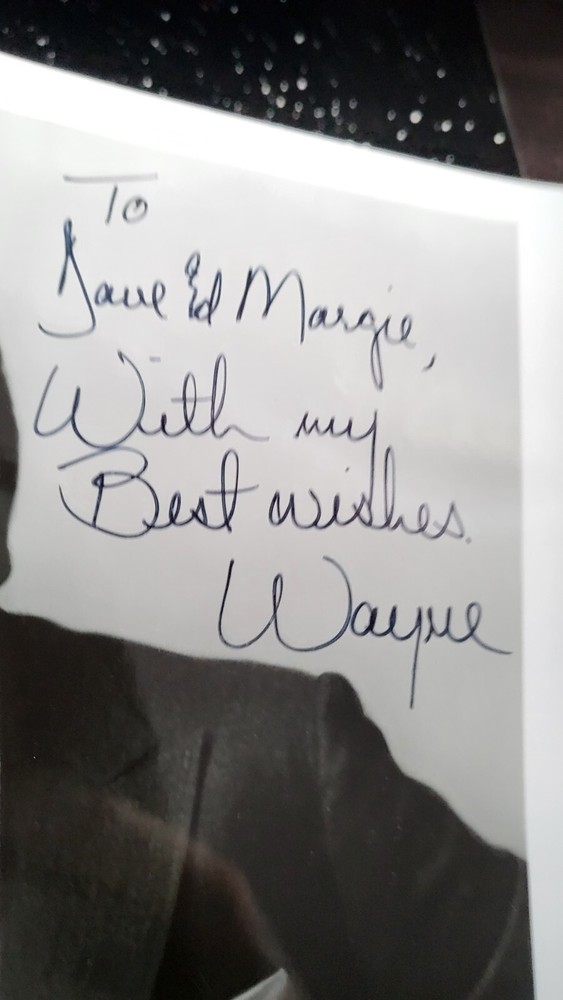 To
Dave Ed Margie,
With my
Best wishes.
Wayne